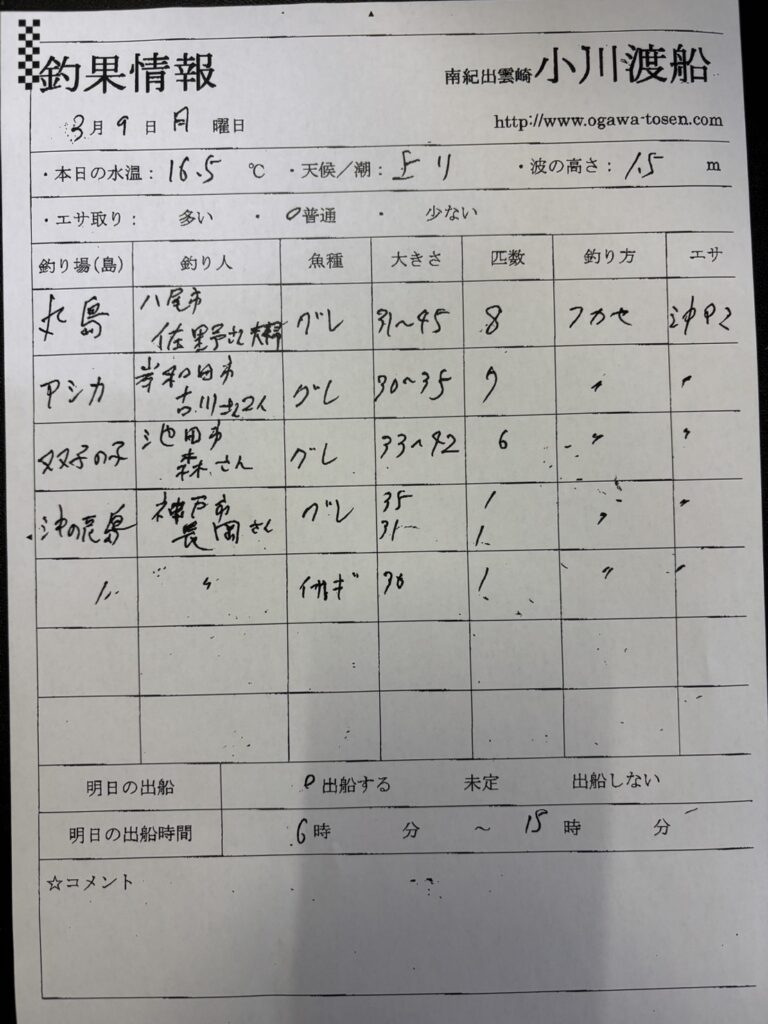 釣果情報
南紀出雲崎 小川渡船
3月9日月曜日
http://www.ogawa-tosen.com
・本日の水温：16.5℃ ・天候／潮：上り ・波の高さ：1.5 m
・エサ取り： 多い ・ ○普通 ・ 少ない
釣り場(島) 釣り人 魚種 大きさ 匹数 釣り方 エサ
丸島 八尾市 佐野さん夫婦 グレ 31〜45 8 フカセ 沖アミ
アシカ 岸和田市 古川さん2人 グレ 30〜35 7 〃 〃
双子の子 池田市 森さん グレ 33〜42 6 〃 〃
沖の荒島 神戸市 長岡さん グレ 35 1 〃 〃
31 1
〃 〃 イサギ 30 1 〃 〃
明日の出船 ○出船する 未定 出船しない
明日の出船時間 6時 分 〜 15時 分
☆コメント